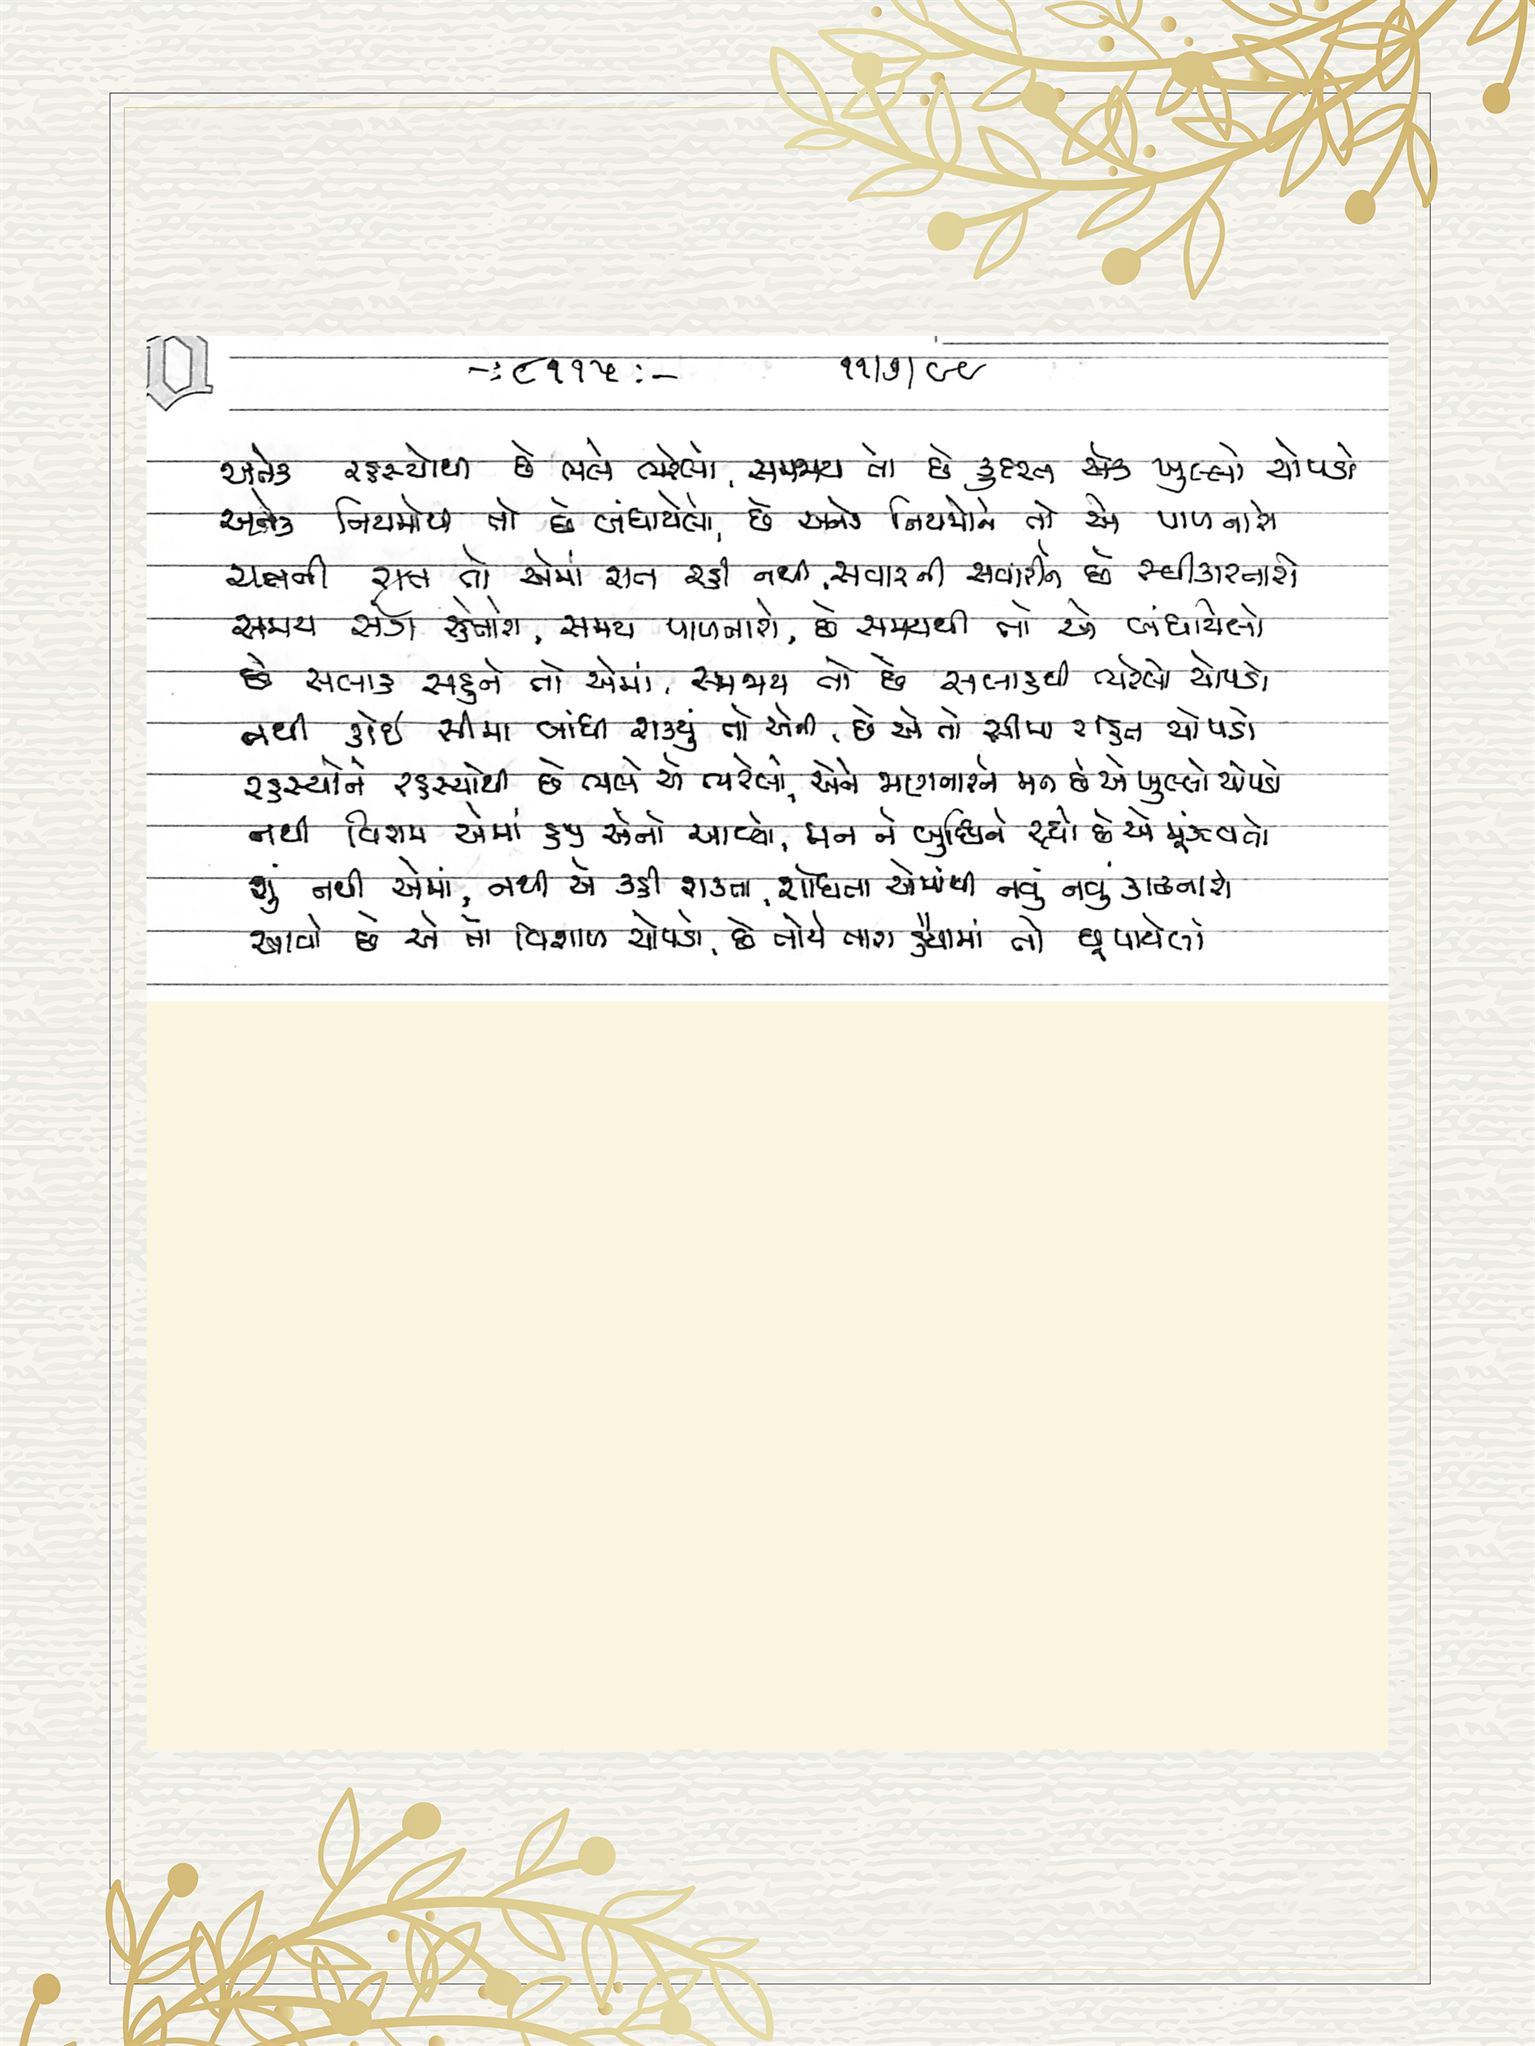 -: ૯૧૧૫ :- ૧૧/૭/૯૯
અનેક રહસ્યોથી છે ભલે ભરેલો, સમજાય તો છે કુદરત એક ખુલ્લો ચોપડો
અનેક નિયમોથી તો છે બંધાયેલો, છે અનેક નિયમોને તો એ પાળનારો
રાત તો એમાં રાત રહી નથી, સવારની સવારીને છે સ્વીકારનારો
સમય સદા, સમય પાળનારો, છે સમયથી તો એ બંધાયેલો
છે સલાહ સહુને તો એમાં, સમજાય તો છે સલાહથી ભરેલો ચોપડો
નથી કોઈ સીમા બાંધી શક્યું તો એની, છે એ તો સીમા રહિત ચોપડો
રહસ્યોને રહસ્યોથી છે ભલે એ ભરેલો, એને ભણનારને મન છે એ ખુલ્લો ચોપડો
નથી વિરામ એમાં હજી એનો આવ્યો, મન ને બુદ્ધિને રહ્યો છે એ મૂંઝવતો
શું નથી એમાં, નથી એ કહી શકતા, શોધતા એમાંથી નવું નવું કાઢનારો
આવો છે એ તો વિશાળ ચોપડો, છે તોયે તારા હૈયામાં તો છૂપાયેલો